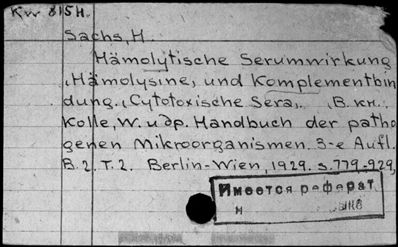 Kw 815H.
Sachs, H.
Hämolytische Serumwirkung
(Hämolysine, und Komplementbin
dung. (Cytotoxische Sera). (В кн.:
Kolle, W. и др. Handbuch der patho
genen Mikroorganismen. 3-e Aufl.
B.2. T.2. Berlin-Wien, 1929. S.779-929,
Имеется реферат